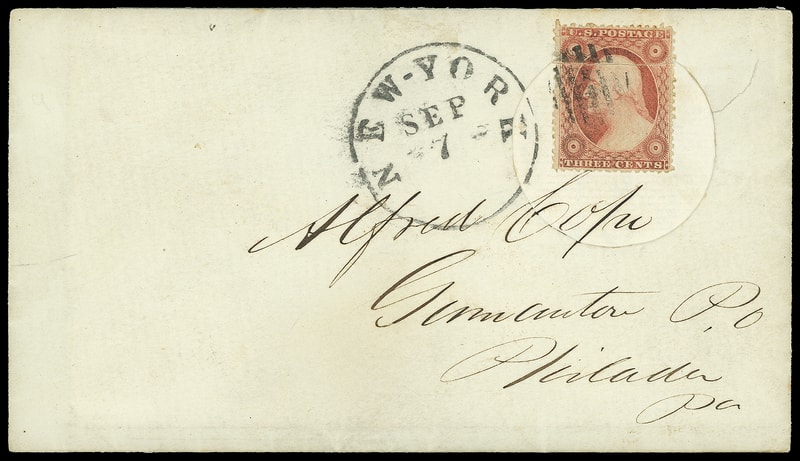 U.S. POSTAGE
THREE CENTS
NEW-YORK
SEP
7
Alfred Cope
Germantown P.O
Philada
Pa